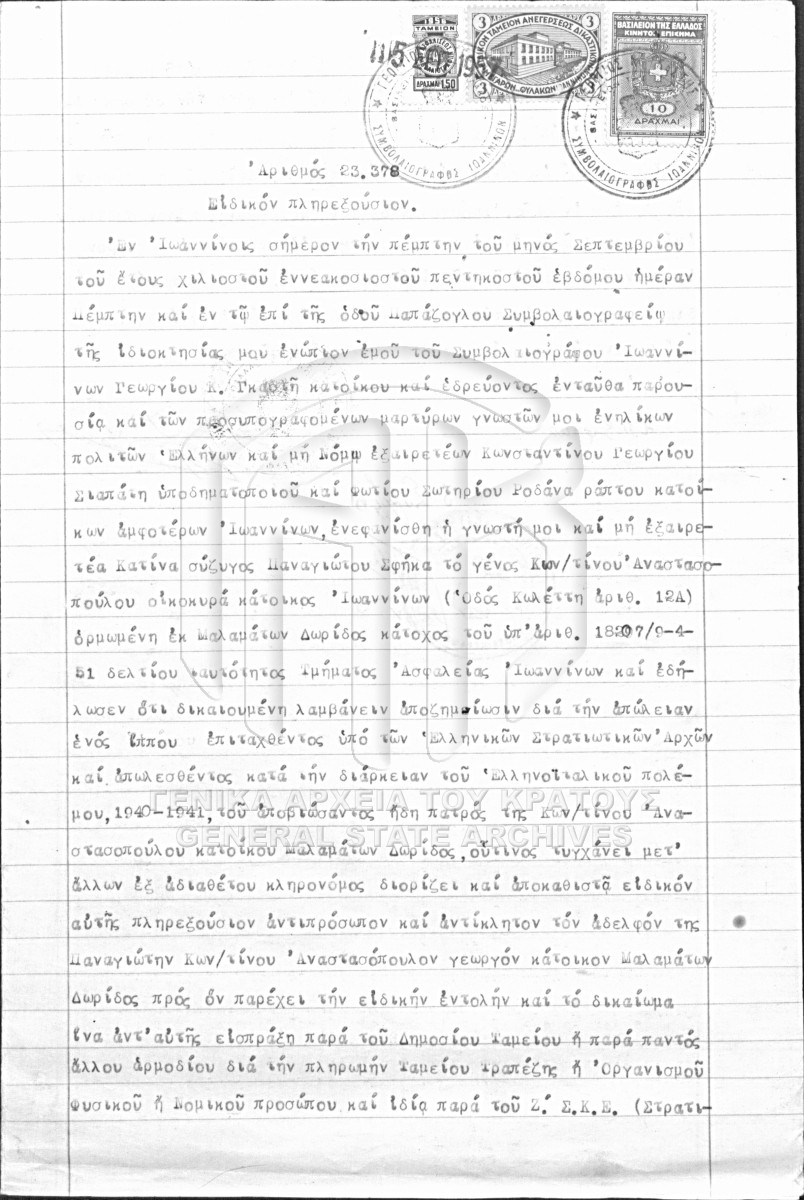 1951
ΤΑΜΕΙΟΝ
ΔΡΑΧΜΑΙ 1.50
3 3
3 3
ΒΑΣΙΛΕΙΟΝ ΤΗΣ ΕΛΛΑΔΟΣ
ΚΙΝΗΤΟΝ ΕΠΙΣΗΜΑ
10
ΔΡΑΧΜΑΙ
1957
ΣΥΜΒΟΛΑΙΟΓΡΑΦΟΣ ΙΩΑΝΝΙΝΩΝ
ΣΥΜΒΟΛΑΙΟΓΡΑΦΟΣ ΙΩΑΝΝΙΝΩΝ
Ἀριθμός 23.378
Εἰδικόν πληρεξούσιον.
Ἐν Ἰωαννίνοις σήμερον τήν πέμπτην τοῦ μηνός Σεπτεμβρίου
τοῦ ἔτους χιλιοστοῦ ἐννεακοσιοστοῦ πεντηκοστοῦ ἑβδόμου ἡμέραν
Πέμπτην καί ἐν τῷ ἐπί τῆς ὁδοῦ Παπάζογλου Συμβολαιογραφείῳ
τῆς ἰδιοκτησίας μου ἐνώπιον ἐμοῦ τοῦ Συμβολαιογράφου Ἰωαννί-
νων Γεωργίου Κ. Γκαρτῆ κατοίκου καί ἑδρεύοντος ἐνταῦθα παρου-
σίᾳ καί τῶν προσυπογραφομένων μαρτύρων γνωστῶν μοι ἐνηλίκων
πολιτῶν Ἑλλήνων καί μή Νόμῳ ἐξαιρετέων Κωνσταντίνου Γεωργίου
Σιαπάτη ὑποδηματοποιοῦ καί Φωτίου Σωτηρίου Ροδάνα ράπτου κατοί-
κων ἀμφοτέρων Ἰωαννίνων, ἐνεφανίσθη ἡ γνωστή μοι καί μή ἐξαιρε-
τέα Κατίνα σύζυγος Παναγιώτου Σφήκα τό γένος Κων/τίνου Ἀναστασο-
πούλου οἰκοκυρά κάτοικος Ἰωαννίνων (Ὁδός Κωλέττη ἀριθ. 12Α)
ὁρμωμένη ἐκ Μαλαμάτων Δωρίδος κάτοχος τοῦ ὑπ' ἀριθ. 18207/9-4-
51 δελτίου ταυτότητος Τμήματος Ἀσφαλείας Ἰωαννίνων καί ἐδή-
λωσεν ὅτι δικαιουμένη λαμβάνειν ἀποζημίωσιν διά τήν ἀπώλειαν
ἑνός ἵππου ἐπιταχθέντος ὑπό τῶν Ἑλληνικῶν Στρατιωτικῶν Ἀρχῶν
καί ἀπωλεσθέντος κατά τήν διάρκειαν τοῦ Ἑλληνοϊταλικοῦ πολέ-
μου, 1940-1941, τοῦ ἀποβιώσαντος ἤδη πατρός της Κων/τίνου Ἀνα-
στασοπούλου κατοίκου Μαλαμάτων Δωρίδος, οὗτινος τυγχάνει μετ'
ἄλλων ἐξ ἀδιαθέτου κληρονόμος διορίζει καί ἀποκαθιστᾷ εἰδικόν
αὐτῆς πληρεξούσιον ἀντιπρόσωπον καί ἀντίκλητον τόν ἀδελφόν της
Παναγιώτην Κων/τίνου Ἀναστασόπουλον γεωργόν κάτοικον Μαλαμάτων
Δωρίδος πρός ὅν παρέχει τήν εἰδικήν ἐντολήν καί τό δικαίωμα
ἵνα ἀντ' αὐτῆς εἰσπράξῃ παρά τοῦ Δημοσίου Ταμείου ἤ παρά παντός
ἄλλου ἁρμοδίου διά τήν πληρωμήν Ταμείου Τραπέζης ἤ Ὀργανισμοῦ
Φυσικοῦ ἤ Νομικοῦ προσώπου καί ἰδίᾳ παρά τοῦ Ζ. Σ.Κ.Ε. (Στρατι-
ΓΕΝΙΚΑ ΑΡΧΕΙΑ ΤΟΥ ΚΡΑΤΟΥΣ
GENERAL STATE ARCHIVES